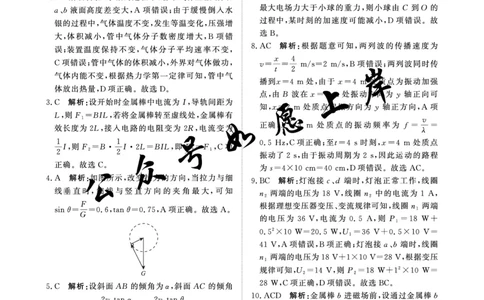 a、b 液面高度差变大,A 项错误;由于缓慢倒入水
银的过程中,气体温度不变,发生等温变化,压强增
大,体积减小,管中气体分子数密度增大,B 项错
误;装置温度保持不变,气体分子平均速率不变,
C 项错误;管中气体的体积减小,外界对气体做功,
气体内能不变,根据热力学第一定律可知,管中气
体放出热量,D 项正确。故选 D。
3. C 解析:设开始时金属棒中电流为 I,导轨间距为
L,则 F₁=BIL,若将金属棒转至虚线处,金属棒有
效长度为 2L,接入电路的电阻变为 2R,电流变为
1/2 I,则 F₂=B·1/2 I·2L=BIL,即 F₁,C 项
正确。故选 C。
4. A 解析:如图所示,改变的方向,当拉力与细
线垂直时,与竖直方向的夹角最大,可知
sin θ=F/G=0.6,tan θ=0.75,A 项正确。故选 A。
G
5. C 解析:设斜面 AB 的倾角为 α,斜面 AC 的倾角
最大电场力大于小球的重力,则小球由 C 到 O 的
过程中,某时刻的加速度可能减小,D 项错误。故
选 B。
8. AC 解析:根据题意可知,两列波的传播速度为
v=x/t=4/2 m/s=2 m/s,B 项错误;两列波同时传
播到 x=4 m 处,由于 x=4 m 点为振动加强
点,由 B 波在 x= 处振动为 y 轴正向可
知,x= m 处质点振动方向为 y 轴正方向,A 项
正确 m 处质点的振动频率为 f=v/λ=
0.5 Hz,C 项正确;至 t=8 s 时刻,x=4 m 处质点
振动了 2 s,由于振动周期为 2 s,因此运动的路程
为 s=4×10 cm=40 cm,D 项错误。故选 AC。
9. BC 解析:灯泡接 c、d 端时,灯泡正常工作,线圈
n₃ 两端的电压为 18 V,线圈 n₂ 中的电流为 1 A,
根据理想变压器变压、变流规律可知,线圈 n₁ 两端
的电压为 36 V,电流为 0.5 A,则 P₁=18 W+
0.5²×10 W=20.5 W,U₁=36 V+0.5×10 V=
41 V,A 项错误,B 项正确;灯泡接 a、b 端时,线圈
n₂ 两端的电压为 18 V+1×10 V=28 V,根据变压
规律可知,U₂=14 V,则 P₂=18 W+1²×10 W=
28 W,C 项正确,D 项错误。故选 BC。
10. ACD 解析:金属棒 b 进磁场前,设通过金属棒 b
公众号如愿上岸